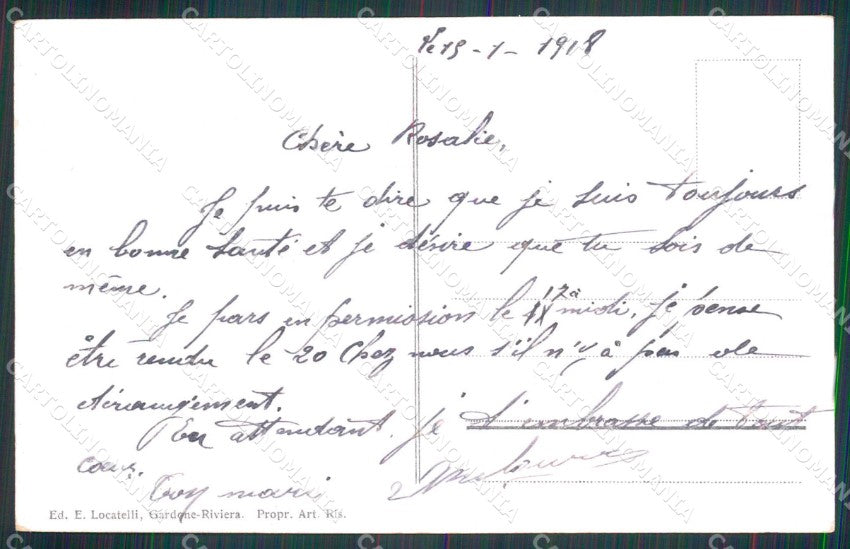 Le 15-1-1918
Chère Rosalie,
Je puis te dire que je suis toujours
en bonne santé et je désire que tu sois de
même.
Je pars en permission le 17 à midi. Je pense
être rendu le 20 chez nous s'il n'y à pas de
dérangement.
En attendant je t'embrasse de tout
cœur.
Ton mari
Ed. E. Locatelli, Gardone-Riviera. Propr. Art. Ris.
CARTOLINOMANIA